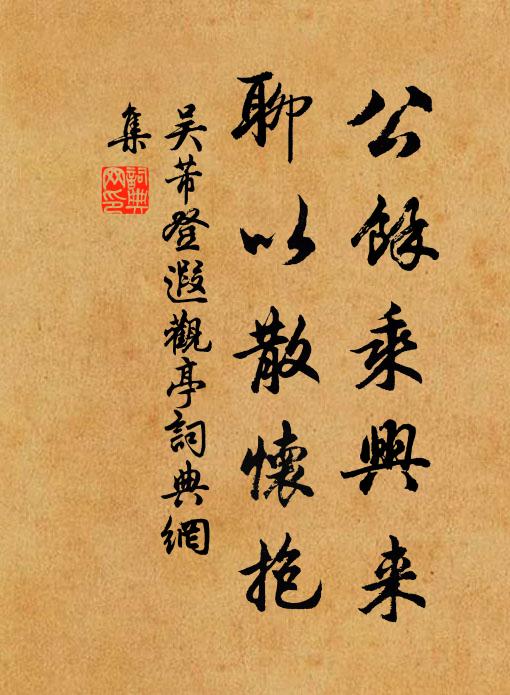 公餘乘興来
聊以散懷抱
吴芾登遐觀亭詞典網
集
詞典网印